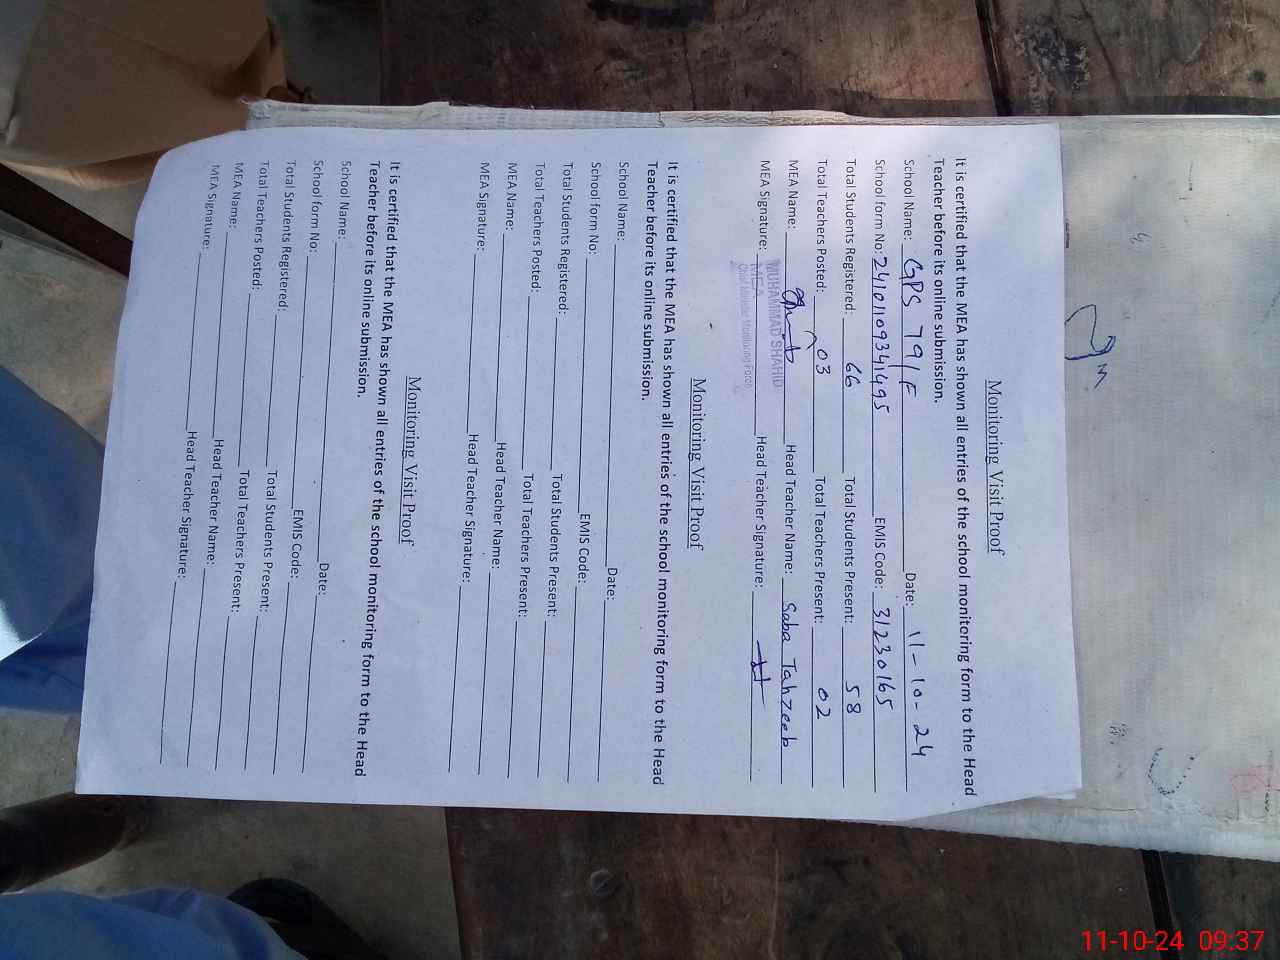 Monitoring Visit Proof
It is certified that the MEA has shown all entries of the school monitoring form to the Head
Teacher before its online submission.
School Name: GPS 79/F Date: 11-10-24
School form No: 24101109341495 EMIS Code: 31230165
Total Students Registered: 66 Total Students Present: 58
Total Teachers Posted: 03 Total Teachers Present: 02
MEA Name: MUHAMMAD SHAHID Head Teacher Name: Saba Tahzeeb
MEA Signature: MEA Head Teacher Signature:
Chief Minister Monitoring Force
Monitoring Visit Proof
It is certified that the MEA has shown all entries of the school monitoring form to the Head
Teacher before its online submission.
School Name: Date:
School form No: EMIS Code:
Total Students Registered: Total Students Present:
Total Teachers Posted: Total Teachers Present:
MEA Name: Head Teacher Name:
MEA Signature: Head Teacher Signature:
Monitoring Visit Proof
It is certified that the MEA has shown all entries of the school monitoring form to the Head
Teacher before its online submission.
School Name: Date:
School form No: EMIS Code:
Total Students Registered: Total Students Present:
Total Teachers Posted: Total Teachers Present:
MEA Name: Head Teacher Name:
MEA Signature: Head Teacher Signature:
11-10-24 09:37